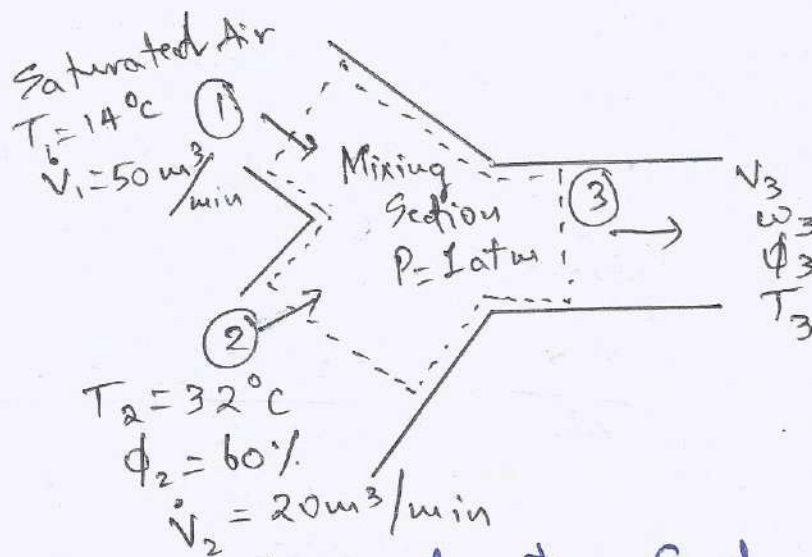 Saturated Air
T₁=14°C
①
V̇₁=50m³/min
Mixing
Section
P=1atm
③
V₃
ω₃
ϕ₃
T₃
②
T₂=32°C
ϕ₂=60%
V̇₂=20m³/min